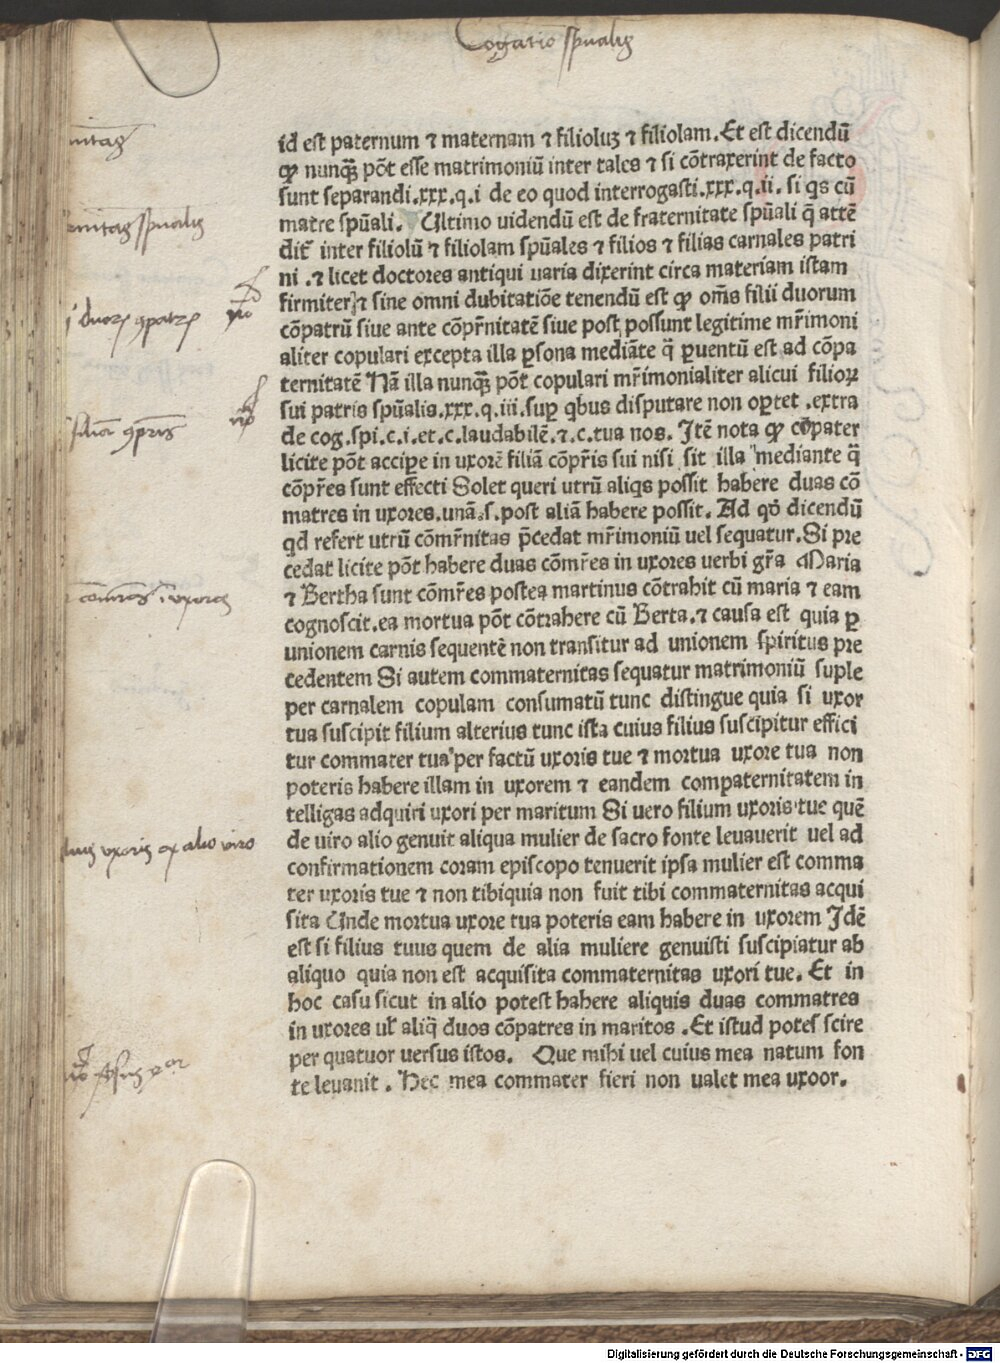 Cognatio sp̄ualis
id est paternum ⁊ maternam ⁊ filioluꝫ ⁊ filiolam. Et est dicendū
ꝙ nunqꝫ pōt esse matrimoniū inter tales ⁊ si cōtraxerint de facto
sunt separandi. xxx. q. i de eo quod interrogasti. xxx. q. ii. si qs cū
matre sp̄uali. Ultimo uidendū est de fraternitate sp̄uali q̄ attē
dit̄ inter filiolū ⁊ filiolam sp̄uales ⁊ filios ⁊ filias carnales patri
ni . ⁊ licet doctores antiqui uaria dixerint circa materiam istam
firmiter ⁊ sine omni dubitatiōe tenendū est ꝙ om̄s filii duorum
cōpatrū siue ante cōpr̄nitatē siue post possunt legitime mr̄imoni
aliter copulari excepta illa ꝑsona mediāte q̄ ꝑuentū est ad cōpa
ternitatē Nā illa nunqꝫ pōt copulari mr̄imonialiter alicui filioꝝ
sui patris sp̄ualis. xxx. q. iii. suꝑ qbus disputare non oꝑtet . extra
de cog. spi. c. i. et. c. laudabilē. ⁊. c. tua nos. Itē nota ꝙ cōpater
licite pōt acciꝑe in uxorē filiā cōpr̄is sui nisi sit illa mediante q̄
cōpr̄es sunt effecti Solet queri utrū aliqs possit habere duas cō
matres in uxores. unā. s. post aliā habere possit. Ad qō dicendū
qd refert utrū cōmr̄nitas p̄cedat mr̄imoniū uel sequatur. Si pre
cedat licite pōt habere duas cōmr̄es in uxores uerbi gr̄a Maria
⁊ Bertha sunt cōmr̄es postea martinus cōtrahit cū maria ⁊ eam
cognoscit. ea mortua pōt cōtrahere cū Berta. ⁊ causa est quia ꝑ
unionem carnis sequentē non transitur ad unionem spiritus pre
cedentem Si autem commaternitas sequatur matrimoniū suple
per carnalem copulam consumatū tunc distingue quia si uxor
tua suscipit filium alterius tunc ista cuius filius suscipitur effici
tur commater tua per factū uxoris tue ⁊ mortua uxore tua non
poteris habere illam in uxorem ⁊ eandem compaternitatem in
telligas adquiri uxori per maritum Si uero filium uxoris tue quē
de uiro alio genuit aliqua mulier de sacro fonte leuauerit uel ad
confirmationem coram episcopo tenuerit ipsa mulier est comma
ter uxoris tue ⁊ non tibi quia non fuit tibi commaternitas acqui
sita Unde mortua uxore tua poteris eam habere in uxorem Idē
est si filius tuus quem de alia muliere genuisti suscipiatur ab
aliquo quia non est acquisita commaternitas uxori tue. Et in
hoc casu sicut in alio potest habere aliquis duas commatres
in uxores ul̄ aliq̄ duos cōpatres in maritos . Et istud potes scire
per quatuor uersus istos. Que mihi uel cuius mea natum fon
te leuanit . Hec mea commater fieri non ualet mea uxoor.
nitas
rnitas sp̄ualis
duoꝝ ꝯpatꝝ
filiā ꝯpr̄is
com̄res ī uxores
lius uxoris ex alio viro